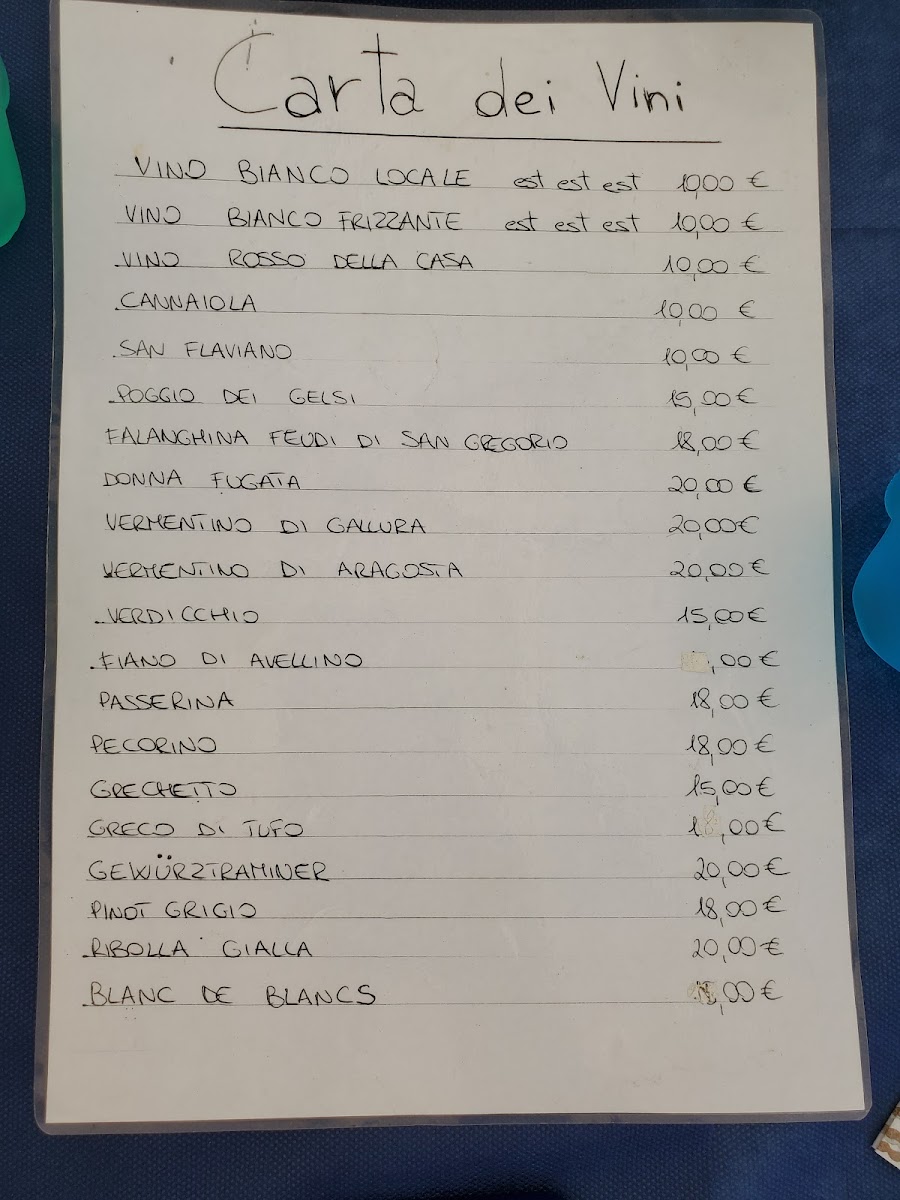 Carta dei Vini
VINO BIANCO LOCALE est est est 10,00 €
VINO BIANCO FRIZZANTE est est est 10,00 €
VINO ROSSO DELLA CASA 10,00 €
CANNAIOLA 10,00 €
SAN FLAVIANO 10,00 €
POGGIO DEI GELSI 15,00 €
FALANGHINA FEUDI DI SAN GREGORIO 18,00 €
DONNA FUGATA 20,00 €
VERMENTINO DI GALLURA 20,00 €
VERMENTINO DI ARAGOSTA 20,00 €
VERDICCHIO 15,00 €
FIANO DI AVELLINO ,00 €
PASSERINA 18,00 €
PECORINO 18,00 €
GRECHETTO 15,00 €
GRECO DI TUFO 18,00 €
GEWÜRZTRAMINER 20,00 €
PINOT GRIGIO 18,00 €
RIBOLLA GIALLA 20,00 €
BLANC DE BLANCS ,00 €